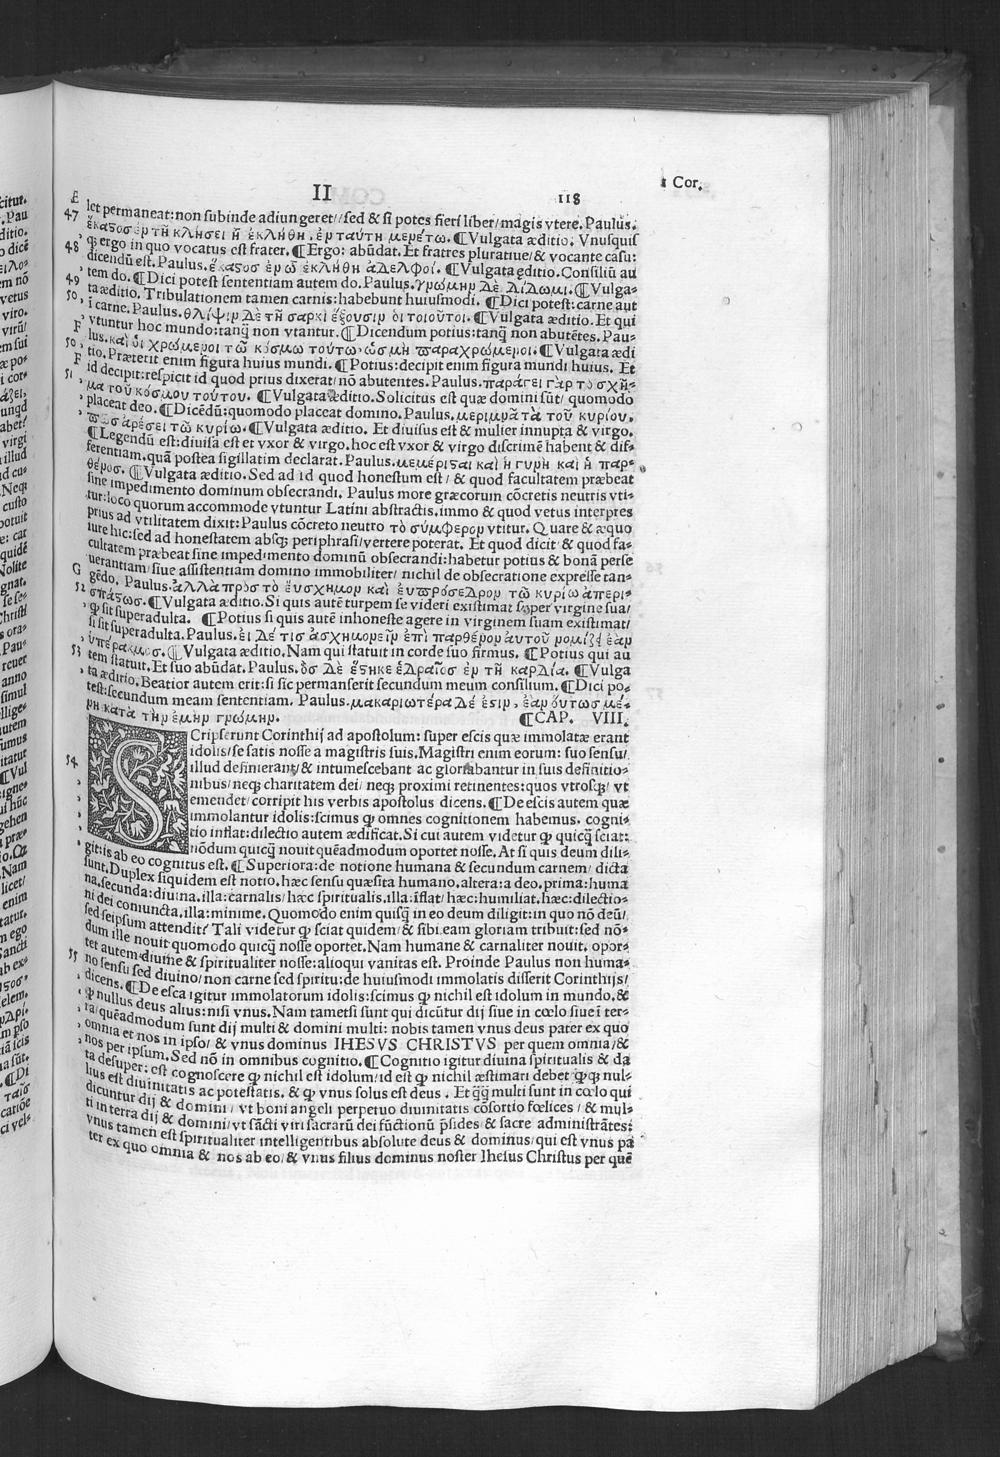 II 118 1 Cor.
E let permaneat: non subinde adiungeret/ sed & si potes fieri liber/ magis vtere. Paulus.
47 ἕκαστος ἐν τῇ κλήσει ᾗ ἐκλήθη, ἐν ταύτῃ μενέτω. ¶Vulgata æditio. Vnusquis
q̃ ergo in quo vocatus est frater. ¶Ergo: abūdat. Et fratres pluratiue/ & vocante casu:
48 dicendū est. Paulus. ἕκαστος ἐν ᾧ ἐκλήθη ἀδελφοί. ¶Vulgata ęditio. Consiliū au
tem do. ¶Dici potest sententiam autem do. Paulus. γνώμην δὲ δίδωμι. ¶Vulga-
49 ta æditio. Tribulationem tamen carnis: habebunt huiusmodi. ¶Dici potest: carne aut
50 ī carne. Paulus. θλίψιν δὲ τῇ σαρκὶ ἕξουσιν οἱ τοιοῦτοι. ¶Vulgata æditio. Et qui
F vtuntur hoc mundo: tanq̃ non vtantur. ¶Dicendum potius: tanq̃ non abutētes. Pau-
50 lus. καὶ οἱ χρώμενοι τῷ κόσμῳ τούτῳ, ὡς μὴ παραχρώμενοι. ¶Vulgata æditi
F tio. Præterit enim figura huius mundi. ¶Potius: decipit enim figura mundi huius. Et
51 id decipit: respicit id quod prius dixerat/ nō abutentes. Paulus. παράγει γὰρ τὸ σχῆ-
μα τοῦ κόσμου τούτου. ¶Vulgata æditio. Solicitus est quæ domini sūt/ quomodo
placeat deo. ¶Dicēdū: quomodo placeat domino. Paulus. μεριμνᾷ τὰ τοῦ κυρίου,
πῶς ἀρέσει τῷ κυρίῳ. ¶Vulgata æditio. Et diuisus est & mulier innupta & virgo.
¶Legendū est: diuisa est et vxor & virgo. hoc est vxor & virgo discrimē habent & dif-
ferentiam. quā postea sigillatim declarat. Paulus. μεμέρισται καὶ ἡ γυνὴ καὶ ἡ παρ-
θένος. ¶Vulgata æditio. Sed ad id quod honestum est/ & quod facultatem præbeat
sine impedimento dominum obsecrandi. Paulus more græcorum cōcretis neutris vti-
tur: loco quorum accommode vtuntur Latini abstractis. immo & quod vetus interpres
prius ad vtilitatem dixit: Paulus cōcreto neutro τὸ σύμφερον vtitur. Quare & æquo
iure hic: sed ad honestatem absq̃ periphrasi/ vertere poterat. Et quod dicit & quod fa-
cultatem præbeat sine impedimento dominū obsecrandi: habetur potius & bonā perse
uerantiam/ siue assistentiam domino immobiliter/ nichil de obsecratione expresse tan-
G gēdo. Paulus. ἀλλὰ πρὸς τὸ ἔυσχημον καὶ ἐυπρόσεδρον τῷ κυρίῳ ἀπερι-
52 σπάστως. ¶Vulgata æditio. Si quis autē turpem se videri existimat super virgine sua/
ꝙ sit superadulta. ¶Potius si quis autē inhoneste agere in virginem suam existimat/
si sit superadulta. Paulus. ἐι δέ τις ἀσχημονεῖν ἐπὶ παρθένον ἀυτοῦ νομίζει ἐὰν
ὑπέρακμος. ¶Vulgata æditio. Nam qui statuit in corde suo firmus. ¶Potius qui au
53 tem statuit. Et suo abūdat. Paulus. ὃς δὲ ἕστηκε ἑδραῖος ἐν τῇ καρδίᾳ. ¶Vulga
ta æditio. Beatior autem erit: si sic permanserit secundum meum consilium. ¶Dici po-
test: secundum meam sententiam. Paulus. μακαριωτέρα δέ ἐσιν, ἐὰν ὅυτως μέ-
νῃ κατὰ τὴν ἐμὴν γνώμην. ¶CAP. VIII.
SCripserunt Corinthij ad apostolum: super escis quæ immolatæ erant
idolis/ se satis nosse a magistris suis. Magistri enim eorum: suo sensu/
54 illud definierant/ & intumescebant ac gloriabantur in suis definitio-
nibus/ neq̃ charitatem dei/ neq̃ proximi retinentes: quos vtrosq̃/ vt
emendet/ corripit his verbis apostolus dicens. ¶De escis autem quæ
immolantur idolis: scimus ꝙ omnes cognitionem habemus. cogni-
tio inflat: dilectio autem ædificat. Si cui autem videtur ꝙ quicq̃ sciat:
nōdum quicq̃ nouit quēadmodum oportet nosse. At si quis deum dili-
git: is ab eo cognitus est. ¶Superiora: de notione humana & secundum carnem/ dicta
sunt. Duplex siquidem est notio. hæc sensu quæsita humano. altera: a deo. prima: humā
na. secunda: diuina. illa: carnalis/ hæc spiritualis. illa: īflat/ hæc: humiliat. hæc: dilectio-
ni dei coniuncta. illa: minime. Quomodo enim quisq̃ in eo deum diligit: in quo nō deū/
sed seipsum attendit? Tali videtur ꝙ sciat quidem/ & sibi eam gloriam tribuit: sed nō-
dum ille nouit quomodo quicq̃ nosse oportet. Nam humane & carnaliter nouit. opor-
tet autem diuine & spiritualiter nosse: alioqui vanitas est. Proinde Paulus non huma-
55 no sensu sed diuino/ non carne sed spiritu: de huiusmodi immolatis disserit Corinthijs/
dicens. ¶De esca igitur immolatorum idolis: scimus ꝙ nichil est idolum in mundo. &
ꝙ nullus deus alius: nisi vnus. Nam tametsi sunt qui dicūtur dij siue in cœlo siue ī ter-
ra/ quēadmodum sunt dij multi & domini multi: nobis tamen vnus deus pater ex quo
omnia et nos in ipso/ & vnus dominus IHESVS CHRISTVS per quem omnia/ &
nos per ipsum. Sed nō in omnibus cognitio. ¶Cognitio igitur diuina spiritualis & da
ta desuper: est cognoscere ꝙ nichil est idolum/ id est ꝙ nichil æstimari debet ꝙ q̃ nul-
lius est diuinitatis ac potestatis. & ꝙ vnus solus est deus. Et q̃q̃ multi sunt in cœlo qui
dicuntur dij & domini/ vt boni angeli perpetuo diuinitatis cōsortio fœlices/ & mul-
ti in terra dij & domini/ vt sācti viri sacrarū dei fūctionū p̄sides & sacre administrātes:
vnus tamen est spiritualiter intelligentibus absolute deus & dominus/ qui est vnus pa
ter ex quo omnia & nos ab eo/ & vnus filius dominus noster Ihesus Christus per quē